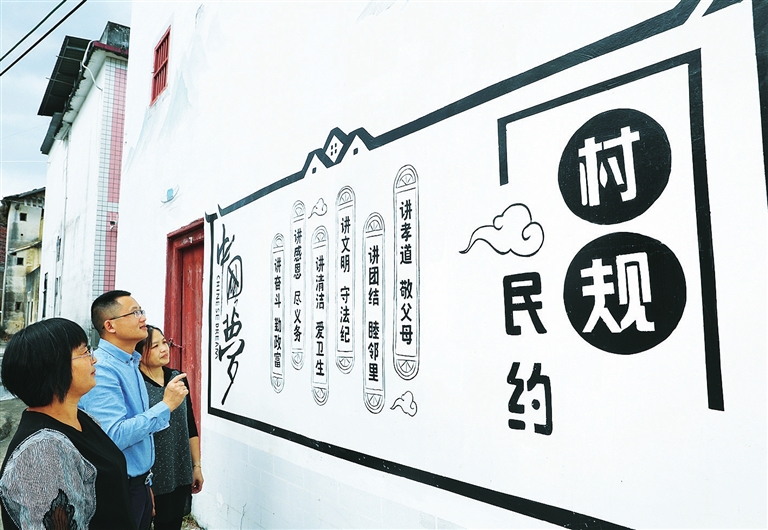 村规
民约
讲孝道 敬父母
讲团结 睦邻里
讲文明 守法纪
讲清洁 爱卫生
讲感恩 尽义务
讲奋斗 勤政富
中国梦
CHINESE DREAM